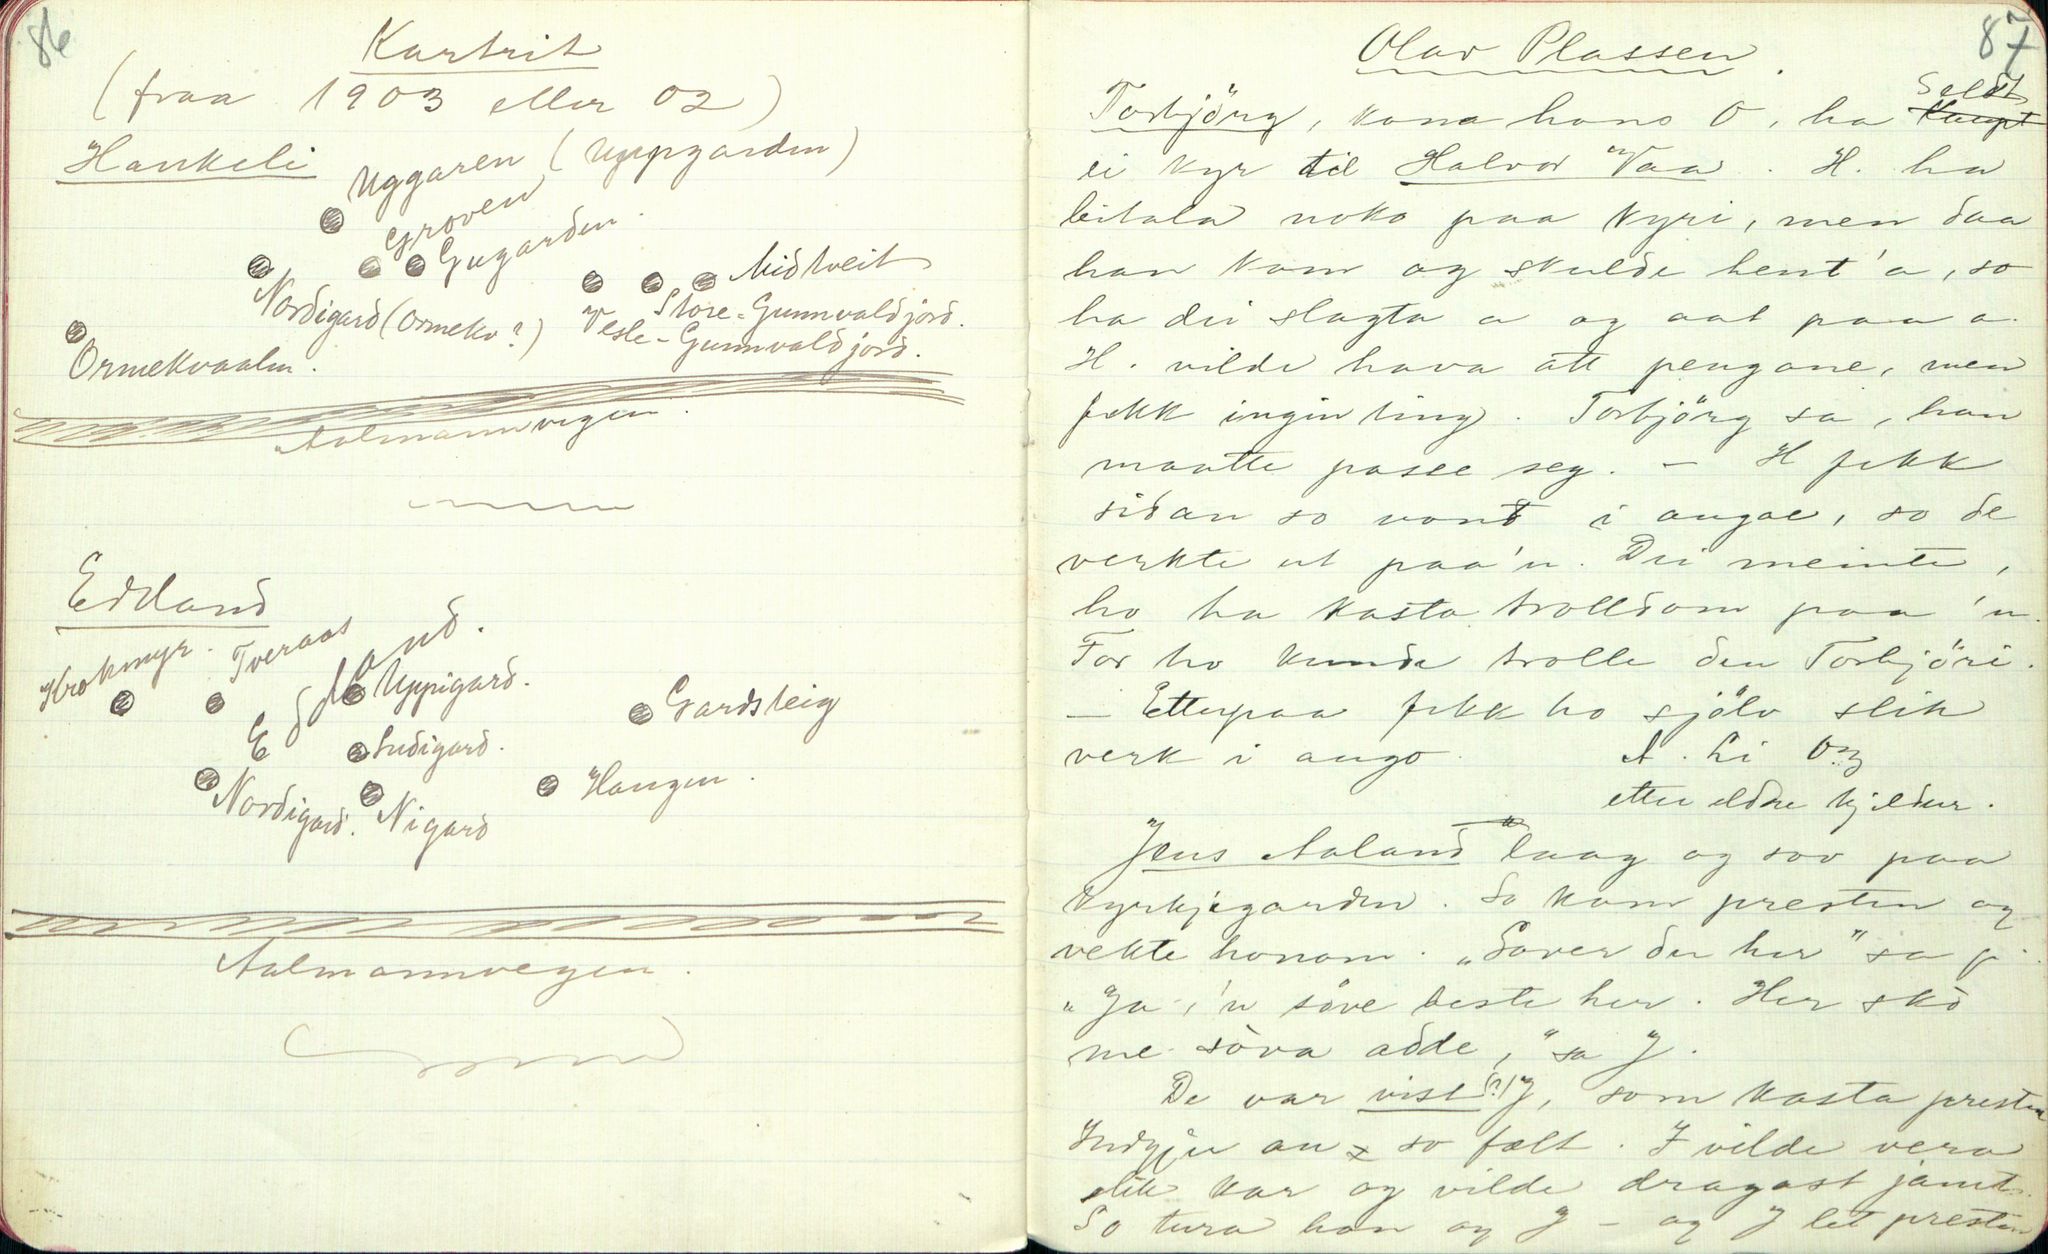 86
Kartrit
(fraa 1903 eller 02)
Haukeli
Uggaren (Uppgarden)
Groven
Gugarden.
Nordigard (Ormekv?)
Midtveit
Store-Gunnvaldjord.
Vesle-Gunnvaldjord.
Ormekvaalen.
Aalmannvegen.
Edland
Krokmyr.
Tveraas
Edland.
Uppigard.
Sudigard.
Gardsteig
Nordigard.
Nigard
Haugen.
Aalmannvegen.
87
Olav Plassen.
Seldt
Torbjörg, kona hans O, ha Kaupt
ei kyr til Halvor Vaa. H. ha
bitala noko paa kyri, men daa
han kom og skulde hent'a, so
ha dei slagta a og aat paa a.
H. vilde hava att pengane, men
fekk ingin ting. Torbjörg sa, han
maatte passe seg. – H fekk
sidan so vondt i augae, so de
verkte ut paa'n. Dei meinte,
ho ha kasta trolldom paa 'n.
For ho kunde trolle den Torbjöri.
– Etterpaa fekk ho sjölv slik
verk i augo. A. Li 03
etter eldre kjeldur.
Jens Aaland laag og sov paa
kyrkjegarden. So kom presten og
vekte honom. „Sover du her" sa p.
„Ja, 'n söve beste her. Her sko
me söva adde," sa J.
De var vist (?) J, som kasta presten
so fælt. J vilde vera
slik kar og vilde dragast jamt.
So tura han og J – og J let presten